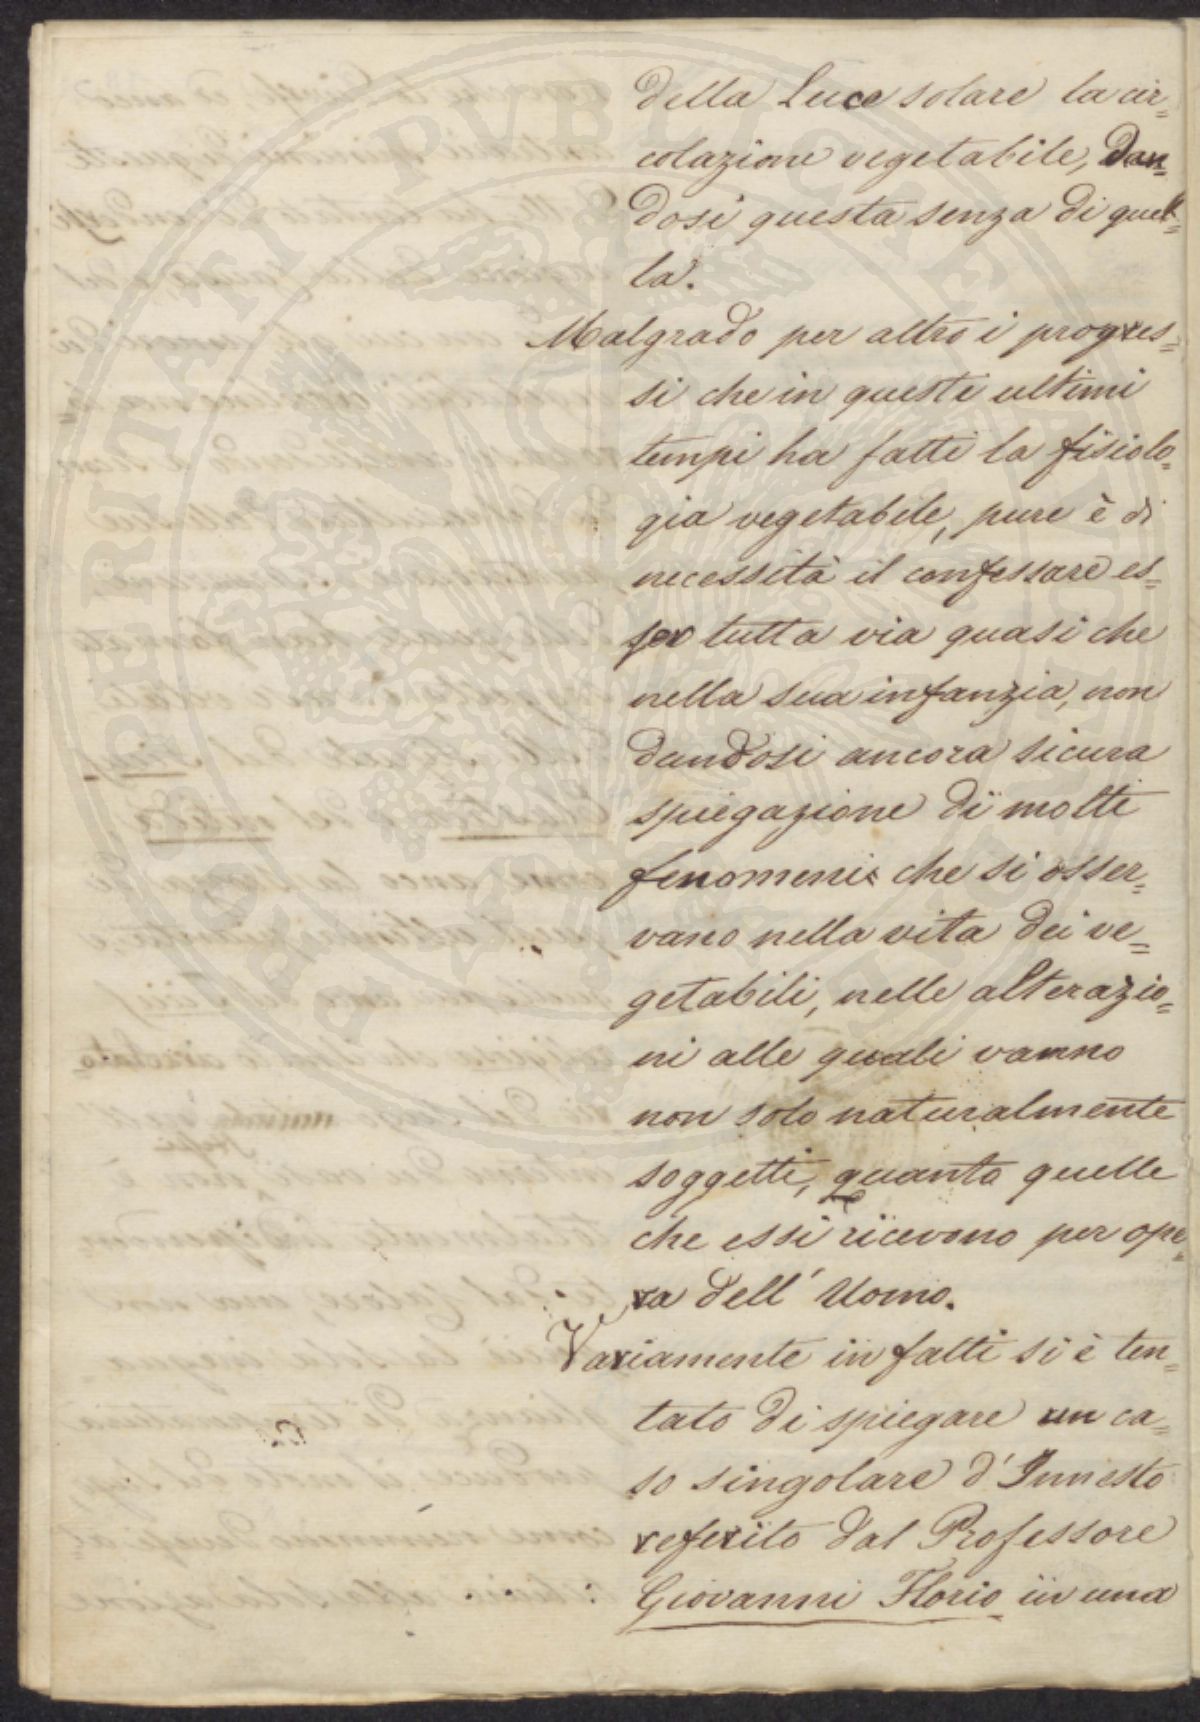 della Luce solare la cir=
colazione vegetabile, Dan=
dosi questa senza di quel=
la.
Malgrado per altro i progres=
si che in questi ultimi
tempi ha fatti la fisiolo=
gia vegetabile, pure è di
necessità il confessare es=
ser tutta via quasi che
nella sua infanzia, non
dandosi ancora sicura
spiegazione di molti
fenomeni che si osser=
vano nella vita dei ve=
getabili, nelle alterazio=
ni alle quali vanno
non solo naturalmente
soggetti, quanto quelle
che essi ricevono per ope=
ra dell' Uomo.
Variamente in fatti si è ten=
tato di spiegare un ca=
so singolare d'Innesto
referito dal Professore
Giovanni Florio in una